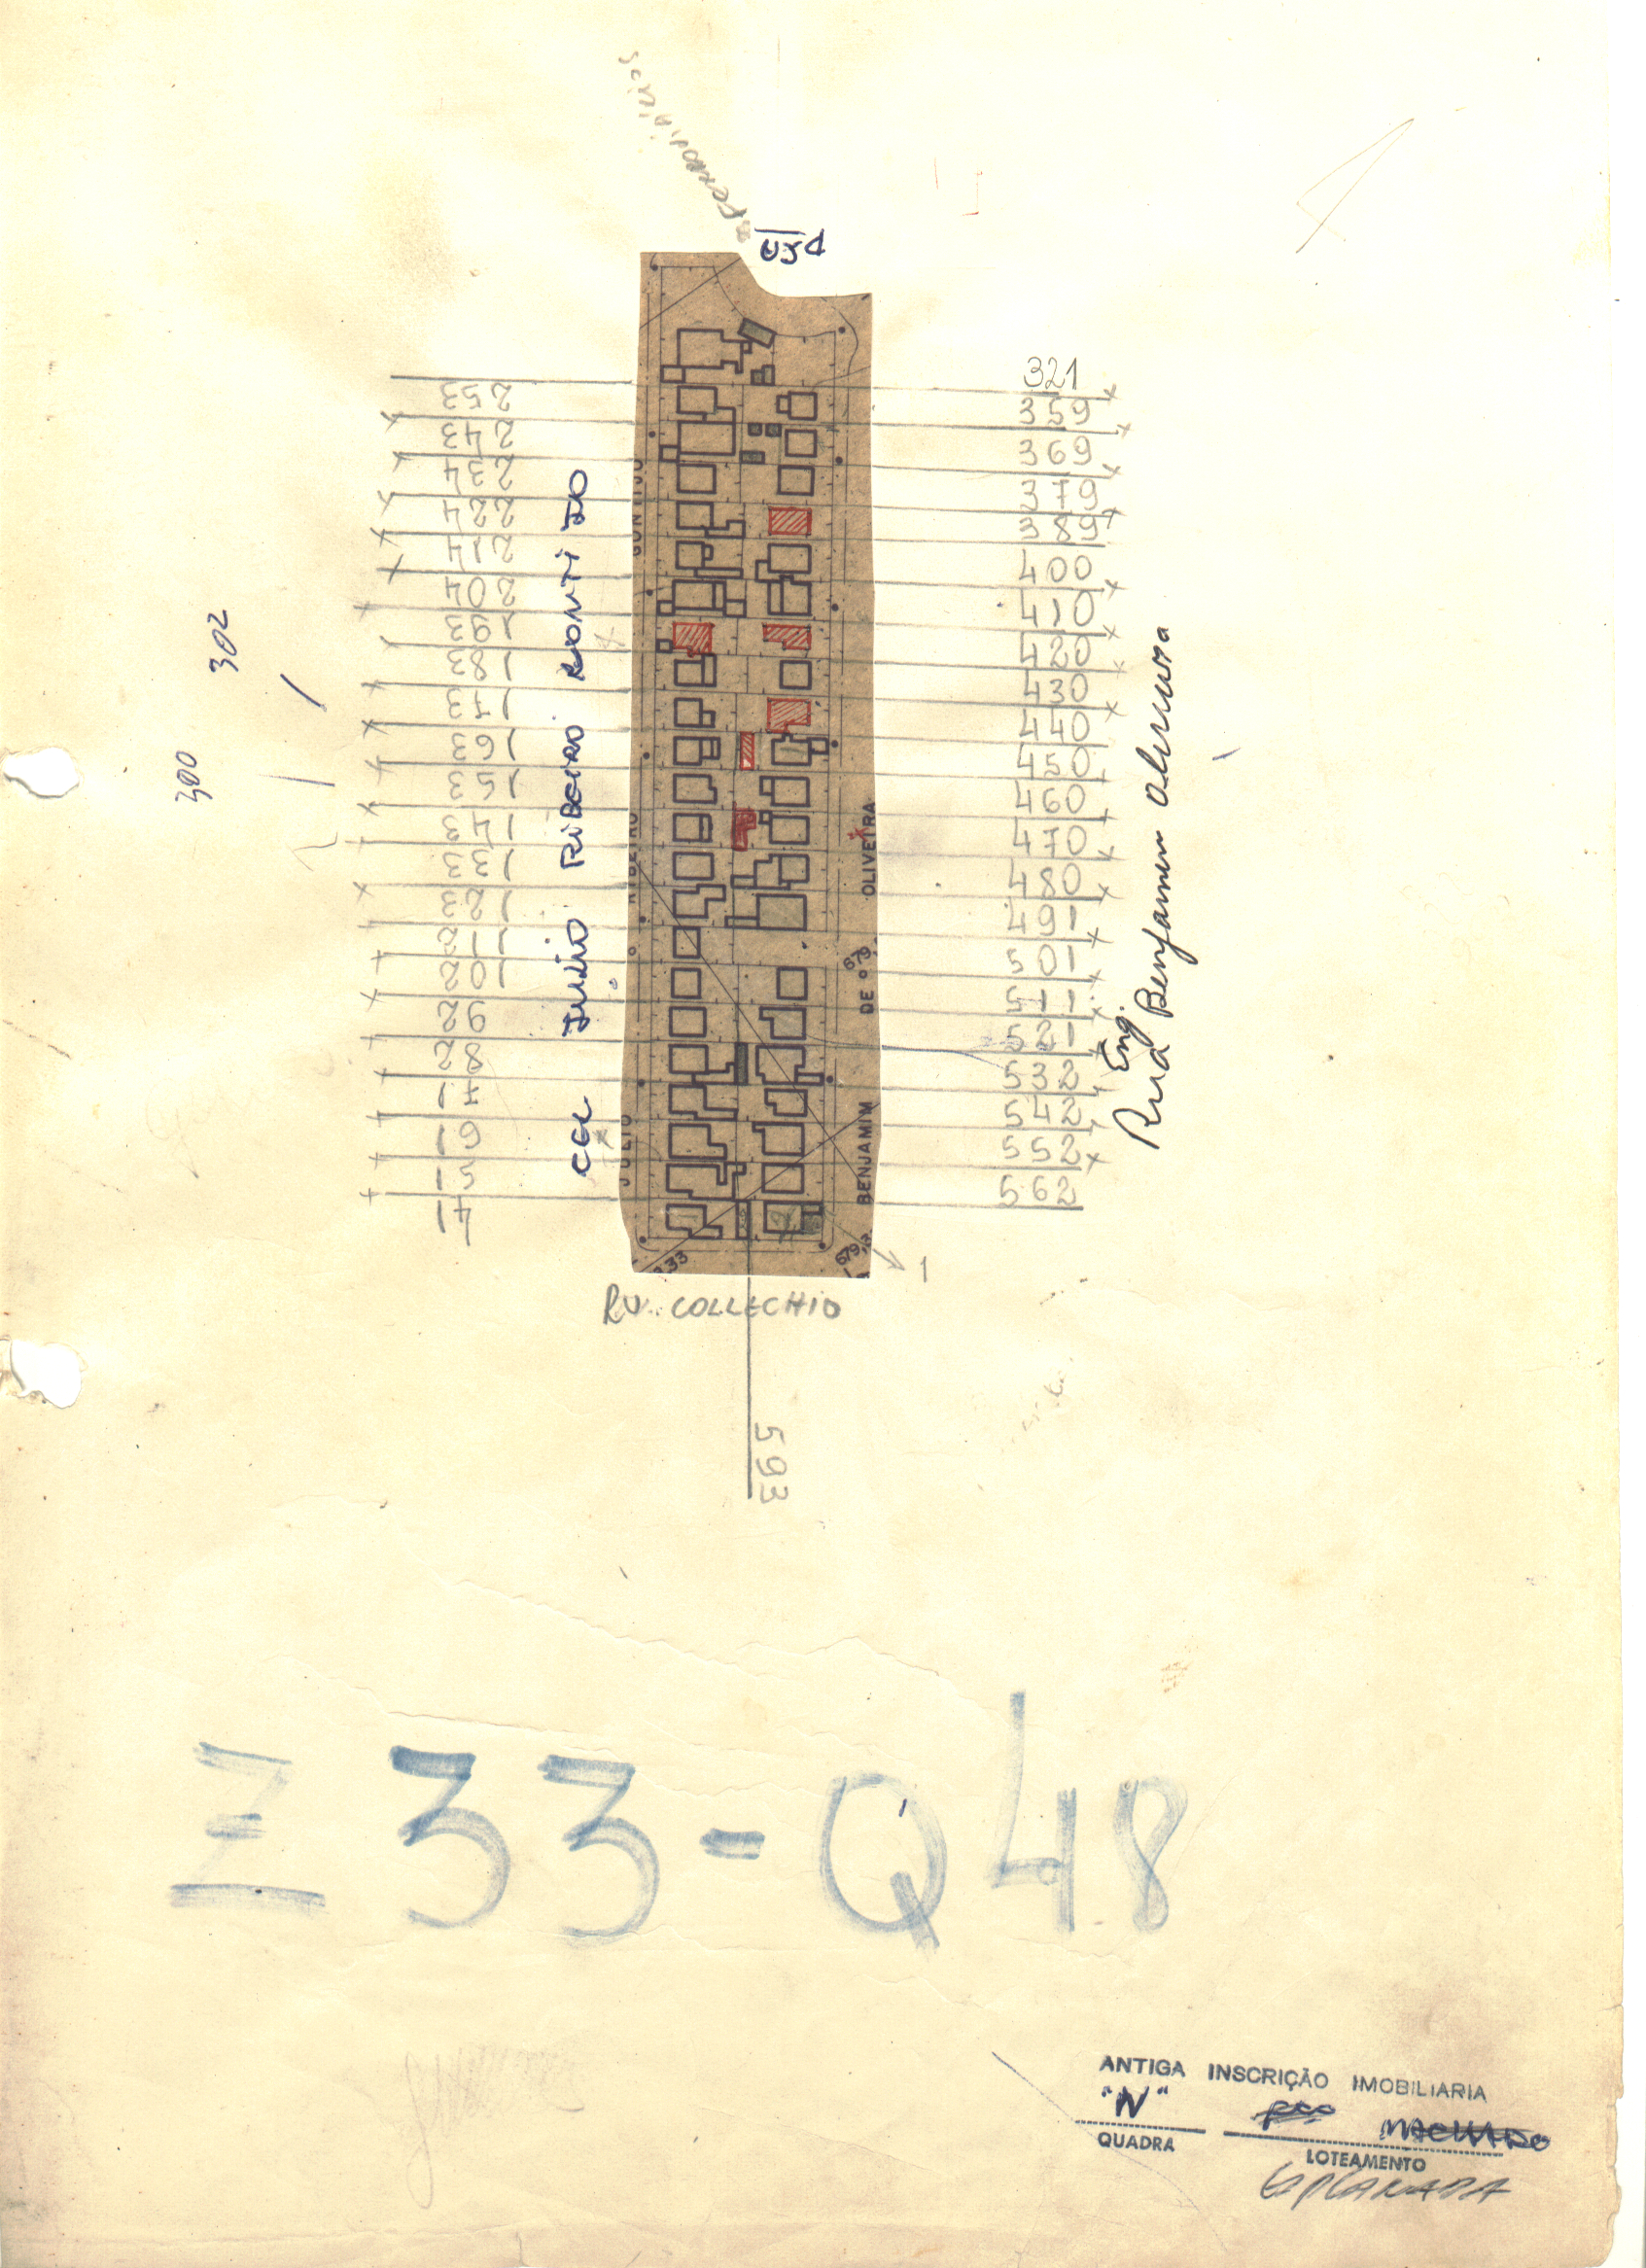 USA
321
359
369
379
389
400
410
420
430
440
450
460
470
480
491
501
511
521
532
542
552
562
253
243
234
224
214
204
193
183
173
163
153
143
133
123
112
102
92
82
71
61
51
41
302
300
CEL JULIO RIBEIRO GONTIJO
Rua Eng. Benjamim Oliveira
BENJAMIM DE OLIVEIRA
JULIO RIBEIRO GONTIJO
679,
33
679,
1
RU. COLLECHIO
593
Z 33-Q48
ANTIGA INSCRIÇÃO IMOBILIARIA
"N" MACHADO
QUADRA LOTEAMENTO
ESPLANADA